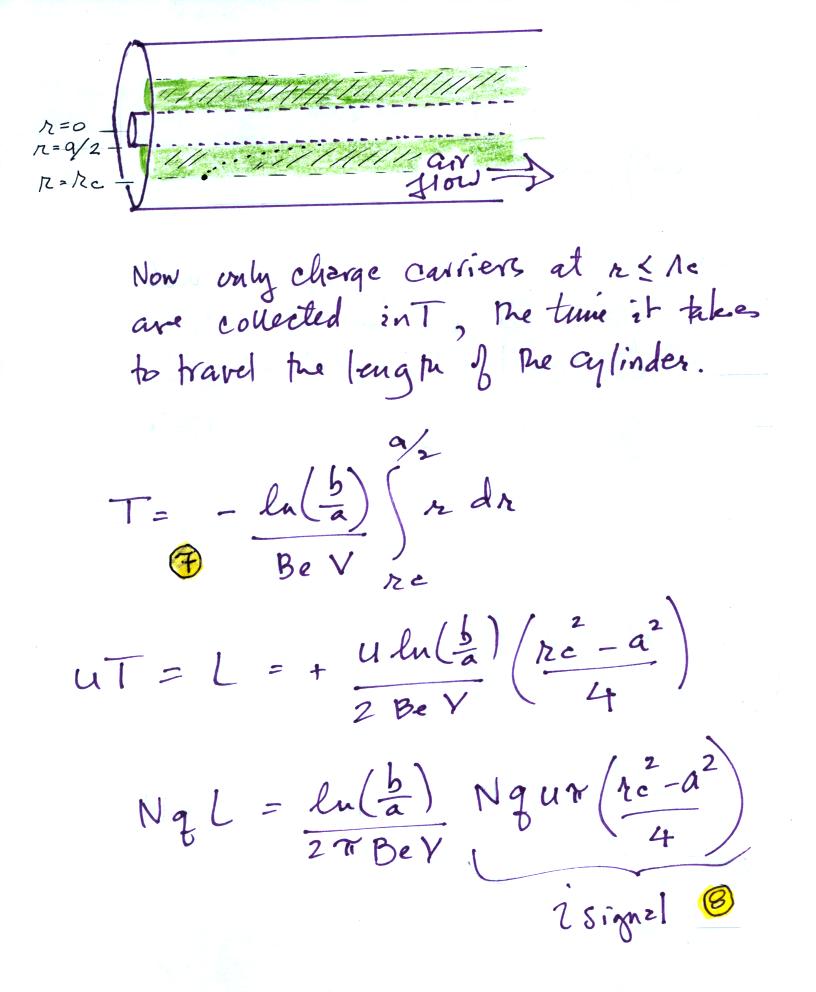 r=0
r=a/2
r=rc
air
flow
Now only charge carriers at r ≤ rc
are collected in T, the time it takes
to travel the length of the cylinder.
T = - ln(b/a) / Be V ∫_{rc}^{a/2} r dr
7
uT = L = + u ln(b/a) / 2 Be V (rc² - a² / 4)
NqL = ln(b/a) / 2π Be V Nq uπ (rc² - a² / 4)
i signal 8